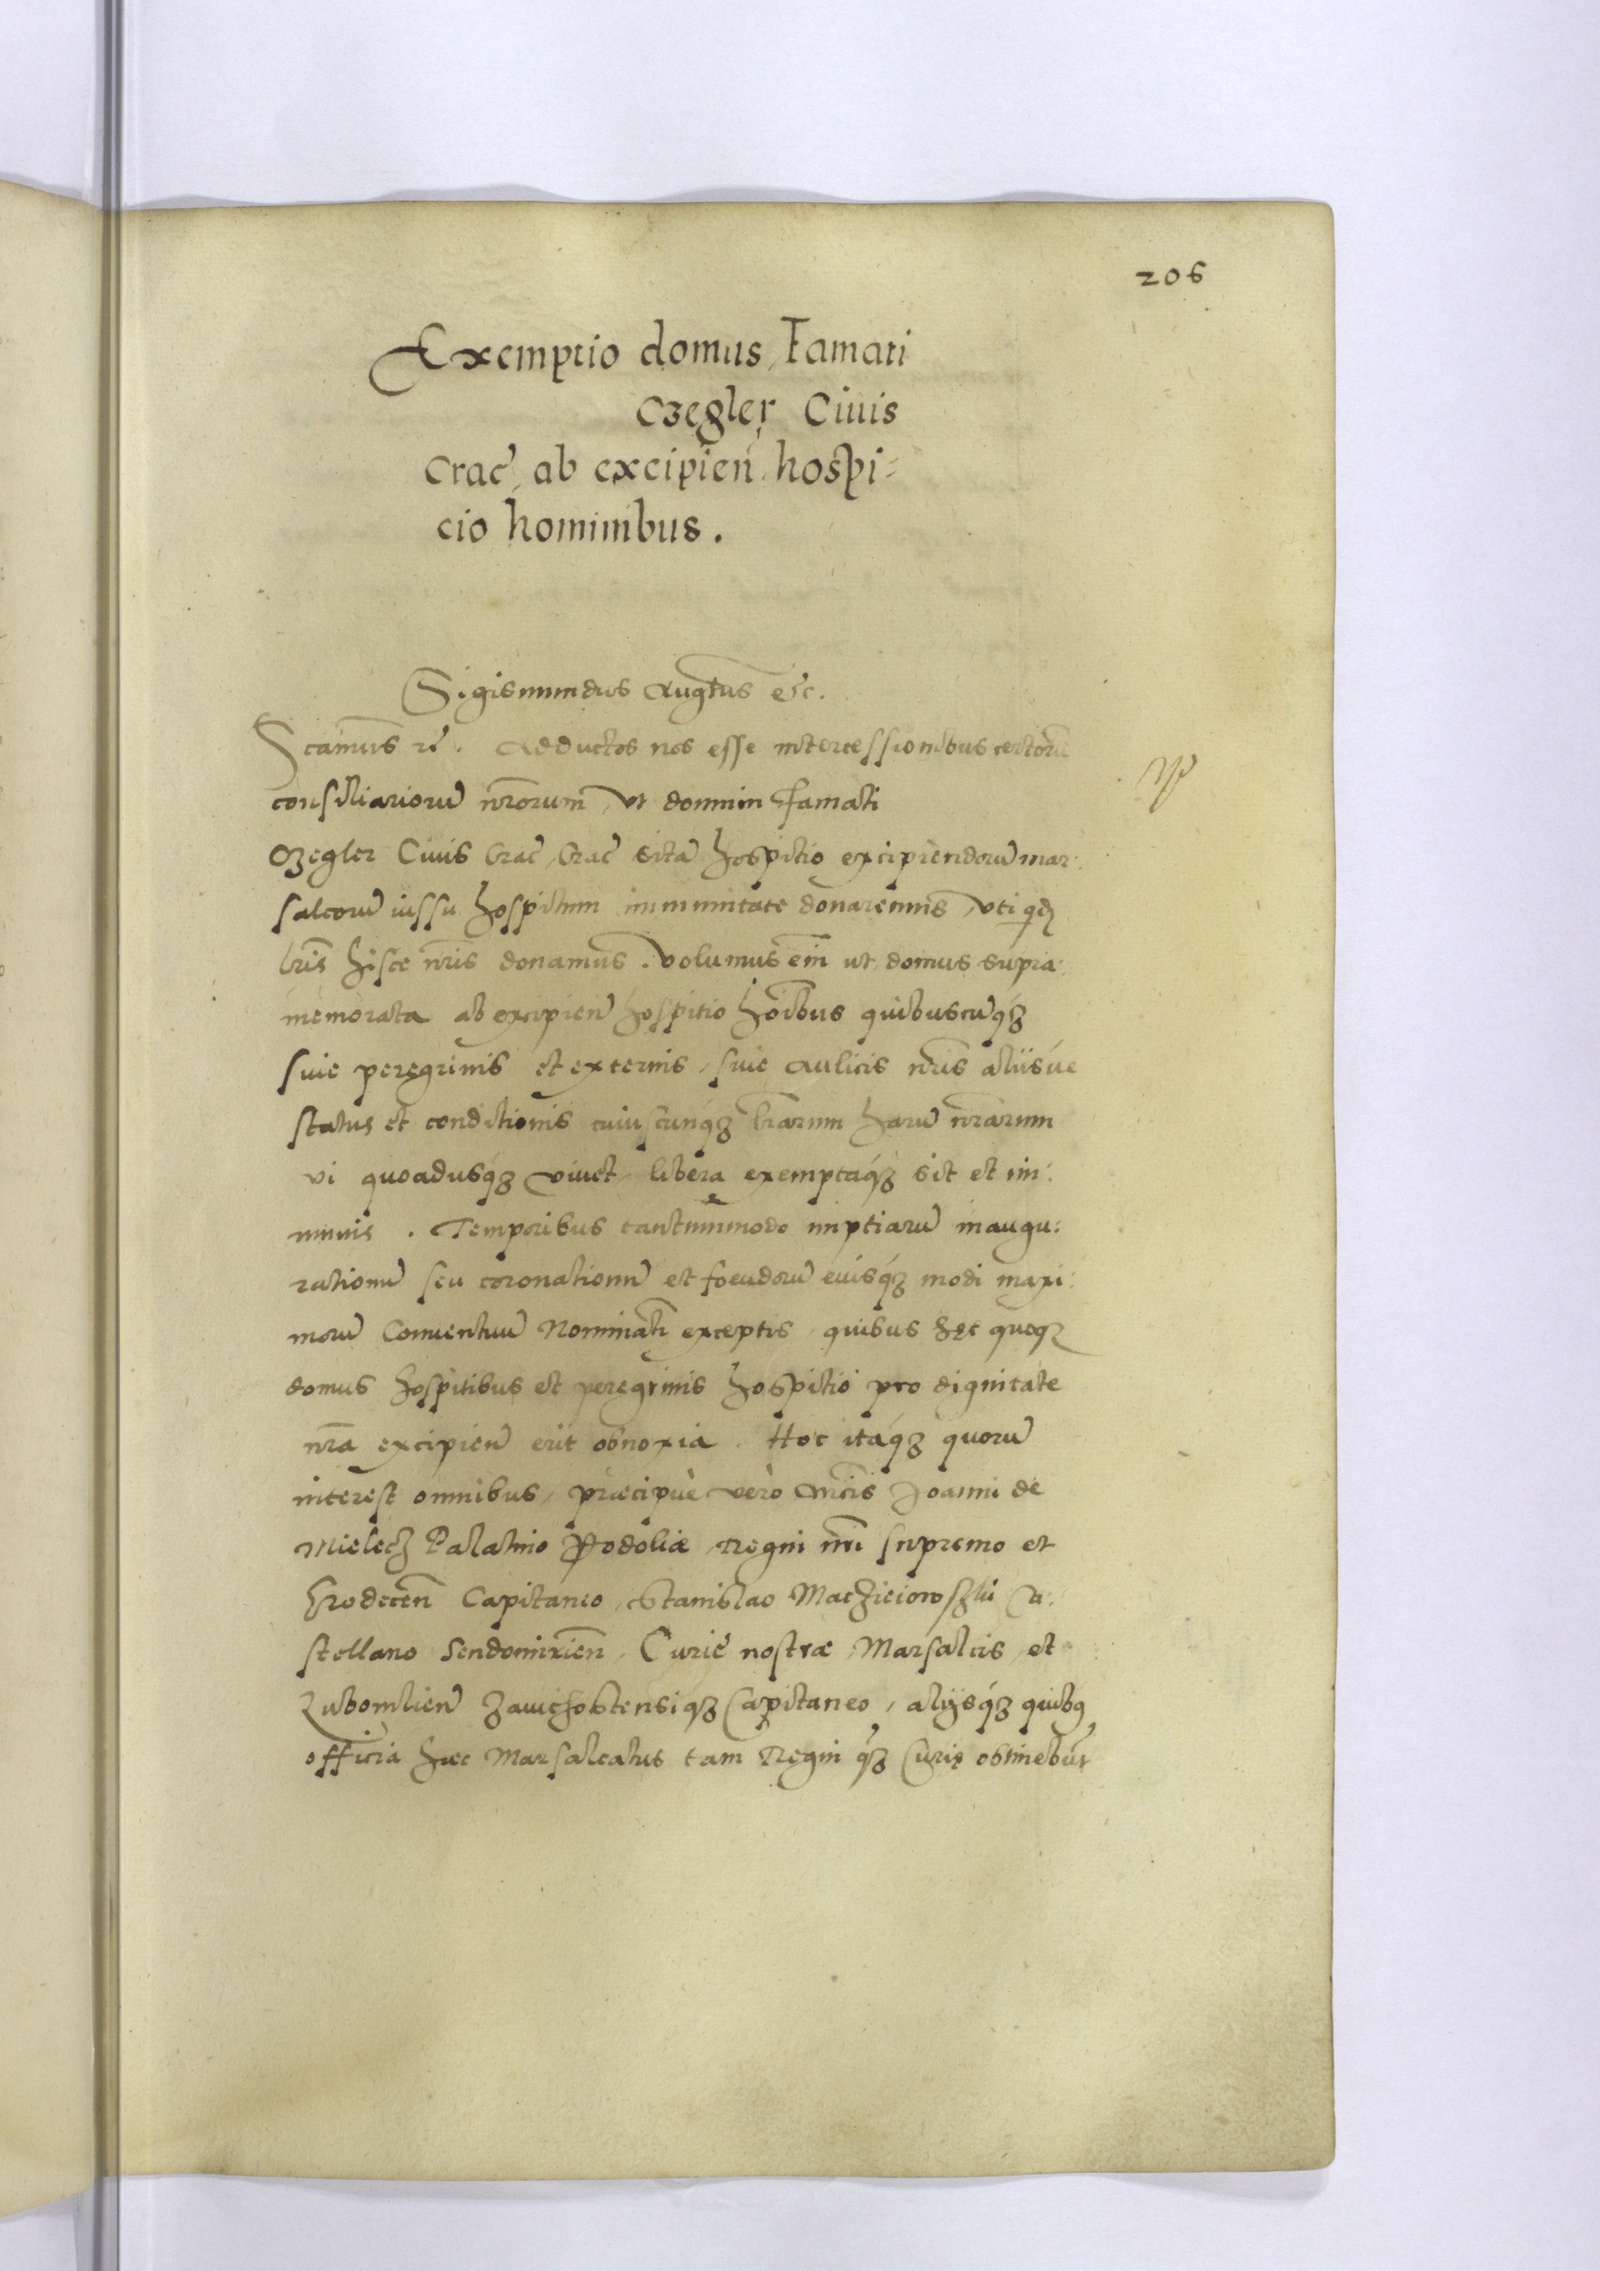 206
Exemptio domus Famati
Czegler Ciuis
Crac̃ ab excipien̄ hospi-
cio hominibus.
Sigismundus Augtus etc.
Scimus rc̃. Adductos nos esse intercessionibus certorū
consiliariorū nr̄orum, vt domum Famati
Czegler Ciuis Crac̃ Crac̃ sitā hospitio excipiendorū mar:
salcorū iussu hospitum immunitate donaremus, vti qdē
lr̄is hisce nr̄is donamus. Volumus em̄ ut domus supra:
memorata ab excipien̄ hospitio hōibus quibuscūqȝ
siue peregrinis et externis, siue Aulicis nr̄is aliisúe
status et conditionis cuiuscunqȝ lr̄arum harū nr̄arum
vi quoadusqȝ viuet, libera exemptaqȝ sit et im:
munis. Temporibus tantummodo nuptiarū inaugu:
rationū seu coronationū et foeudorū eiusqȝ modi maxi:
morū Conuentuū Nominatī exceptis, quibus hęc quoqȝ
domus hospitibus et peregrinis hospitio pro dignitate
nr̄a excipien̄ erit obnoxia. Hoc itaqȝ quorū
interest omnibus, præcipuè verò Mcis Joanni de
Mielecz Palatino Podoliæ Regni nr̄i supremo et
Grodecen̄ Capitaneo, Stanislao Maczieiowszki Ca:
stellano Sendomirien̄, Curiẹ nostræ Marsalcis, et
Lubomlien̄ Zawichostensiqȝ Capitaneo, aliisqȝ quibꝰ
officia hæc Marsalcatus tam Regni qȝ Curię obtinebūt